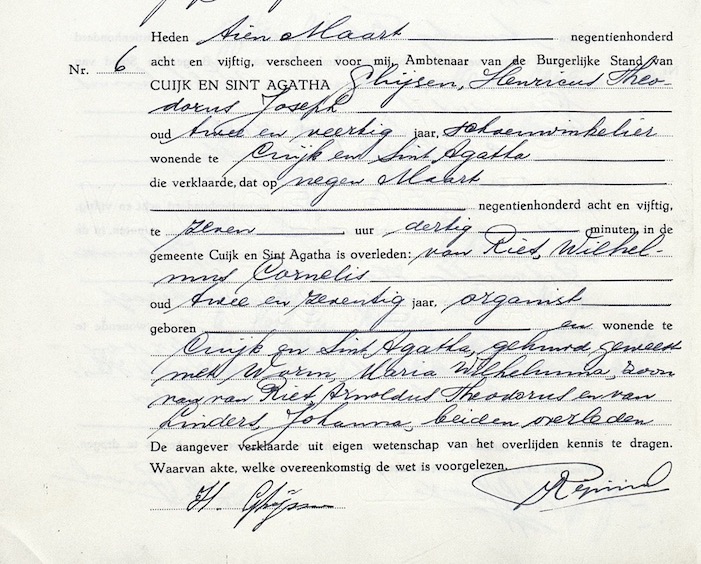 Heden tien Maart negentienhonderd
Nr. 6 acht en vijftig, verscheen voor mij, Ambtenaar van de Burgerlijke Stand van
CUIJK EN SINT AGATHA Ghijsen, Henricus Theo-
dorus Joseph
oud twee en veertig jaar, schoenwinkelier
wonende te Cuijk en Sint Agatha
die verklaarde, dat op negen Maart
negentienhonderd acht en vijftig,
te zeven uur dertig minuten, in de
gemeente Cuijk en Sint Agatha is overleden: van Riet, Wilhel
mus Cornelis
oud twee en zeventig jaar, organist
geboren en wonende te
Cuijk en Sint Agatha, gehuwd geweest
met Worm, Maria Wilhelmina, zoon
van van Riet, Arnoldus Theodorus en van
Linders, Johanna, beiden overleden
De aangever verklaarde uit eigen wetenschap van het overlijden kennis te dragen.
Waarvan akte, welke overeenkomstig de wet is voorgelezen.
H. Ghijsen